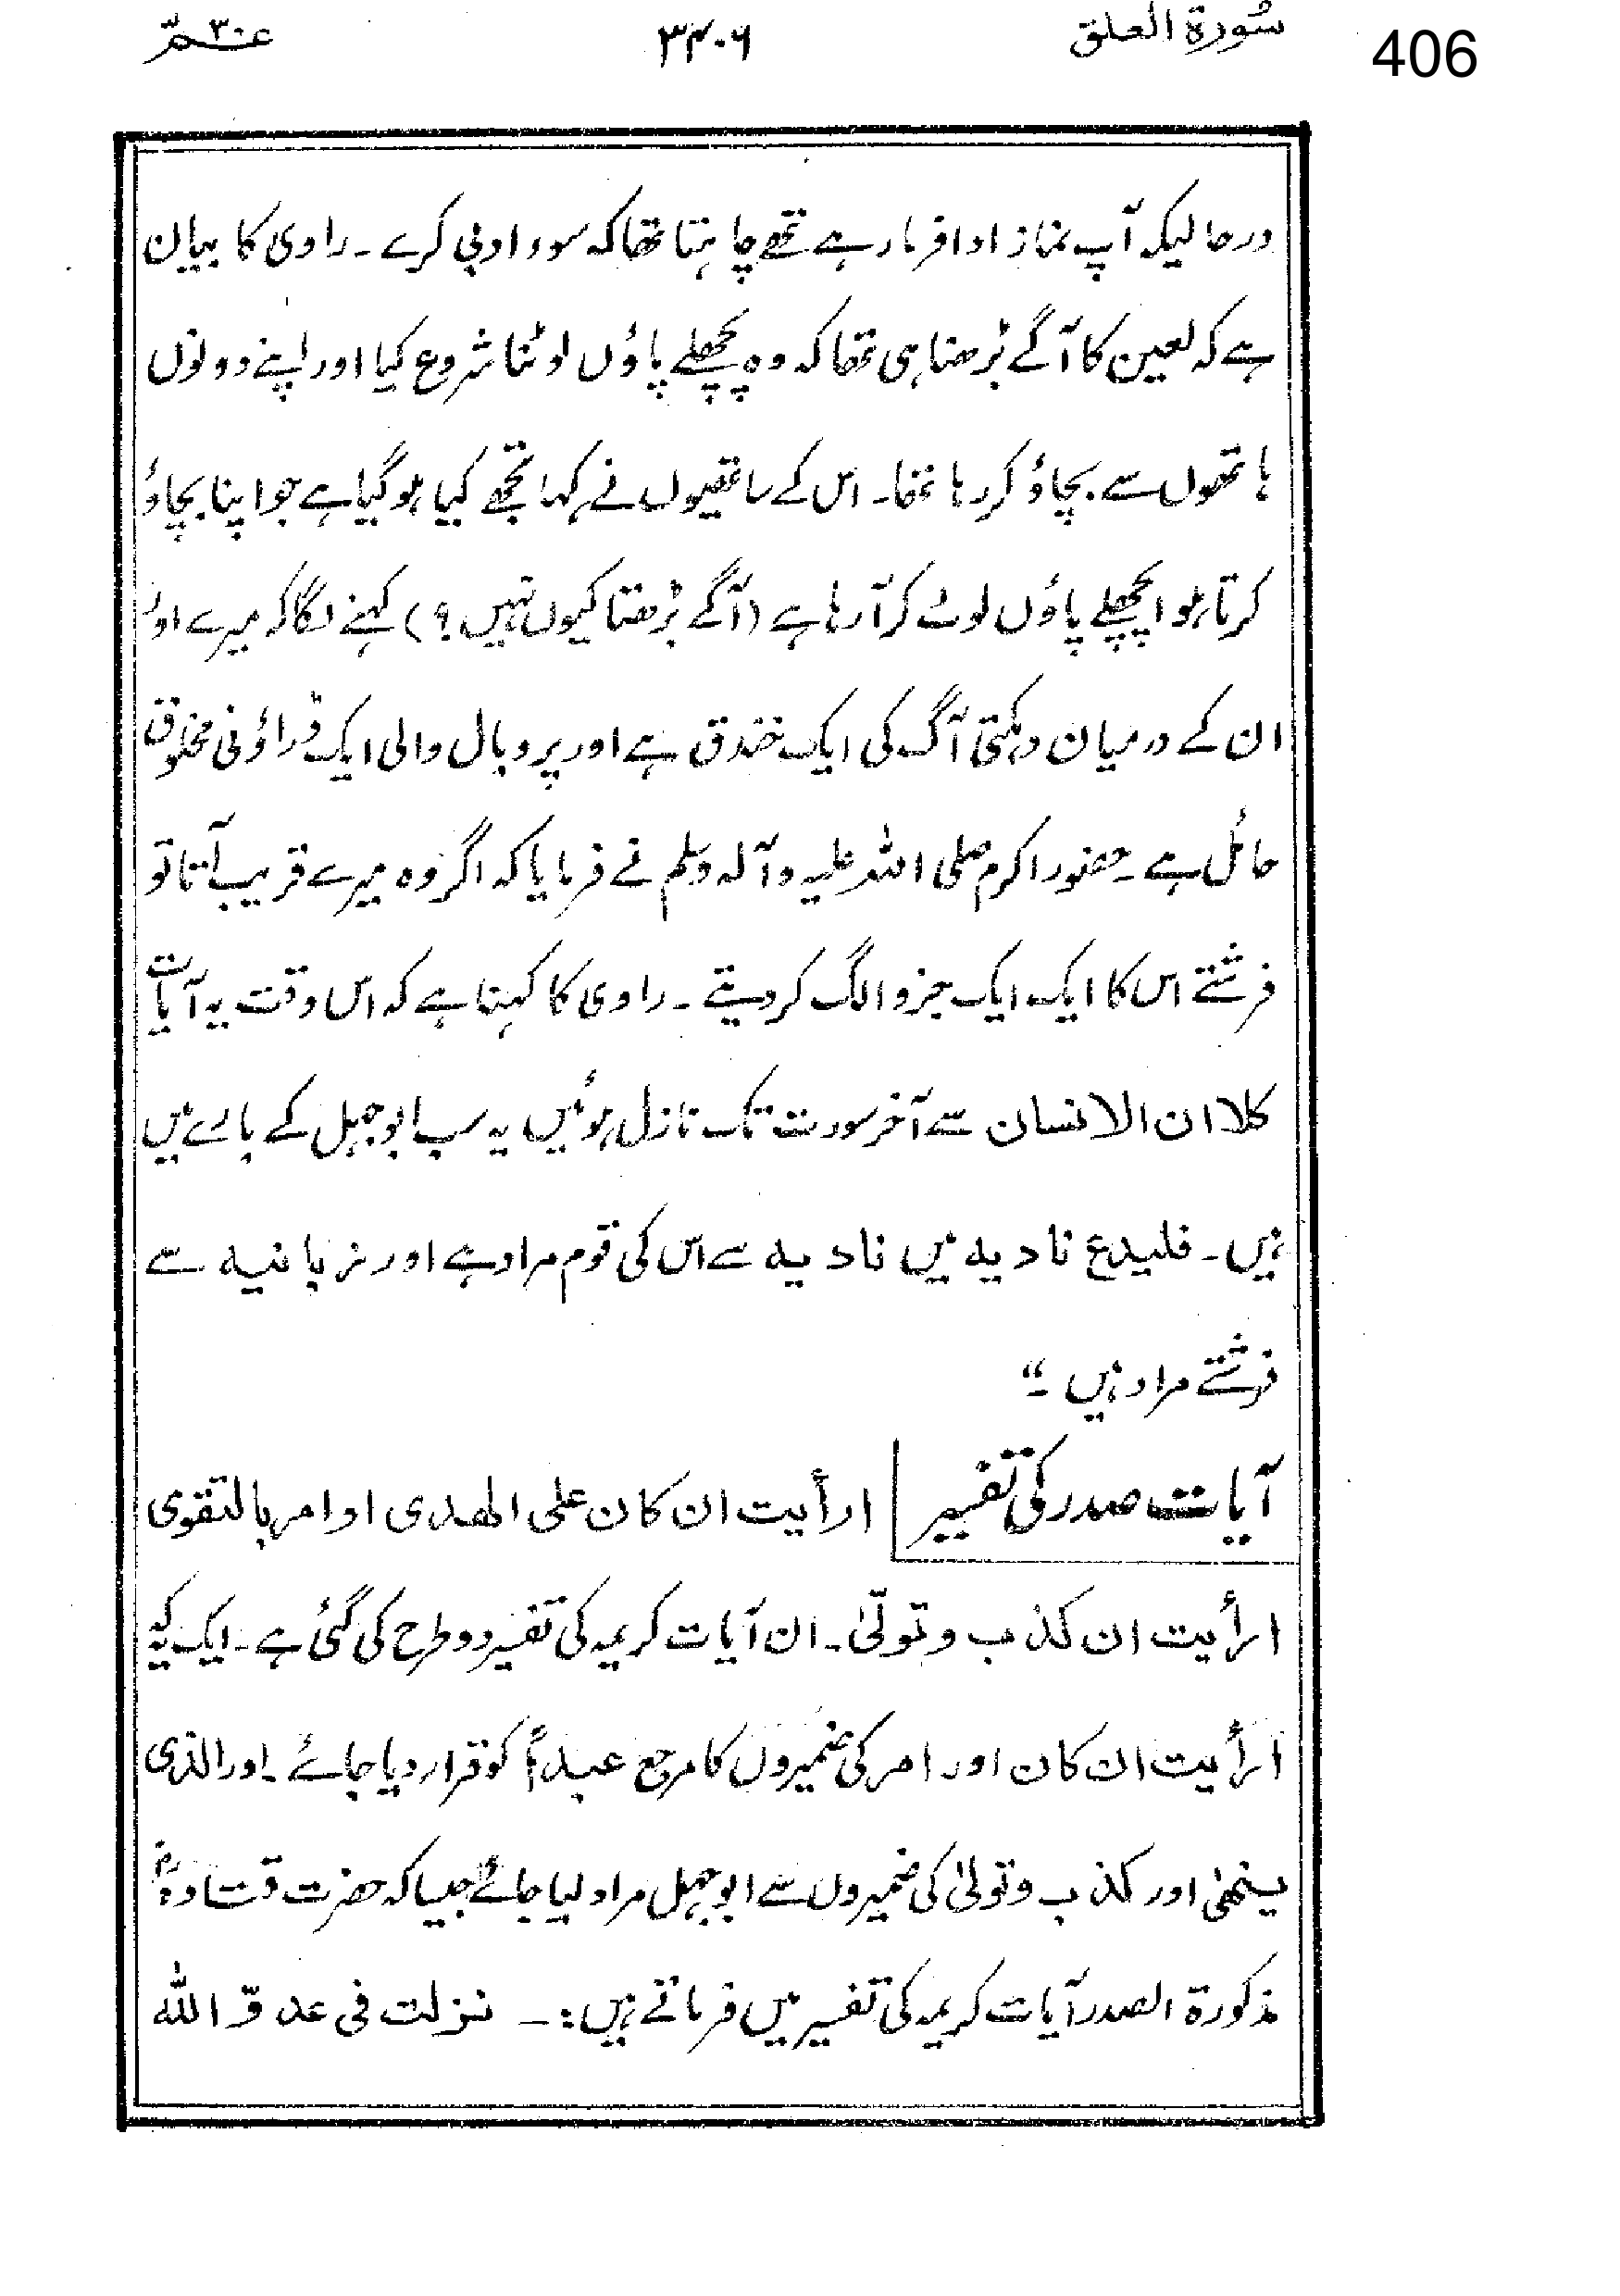 406
سُورة العلق ۳۴۰۶ عـــمّ۳۰
درحالیکہ آپ نماز ادا فرما رہے تھے چاہتا تھا کہ سوء ادبی کرے ۔ راوی کا بیان
ہے کہ لعین کا آگے بڑھنا ہی تھا کہ وہ پچھلے پاؤں لوٹنا شروع کیا اور اپنے دونوں
ہاتھوں سے بچاؤ کر رہا تھا۔ اس کے ساتھیوں نے کہا تجھے کیا ہو گیا ہے جو اپنا بچاؤ
کرتا ہوا پچھلے پاؤں لوٹ کر آ رہا ہے (آگے بڑھتا کیوں نہیں؟) کہنے لگا کہ میرے اور
ان کے درمیان دہکتی آگ کی ایک خندق ہے اور پر و بال والی ایک ڈراؤنی مخلوق
حائل ہے ۔ حضور اکرم صلی اللہ علیہ وآلہ وسلم نے فرمایا کہ اگر وہ میرے قریب آتا تو
فرشتے اس کا ایک ایک جزو الگ کر دیتے ۔ راوی کا کہنا ہے کہ اس وقت یہ آیات
کلا ان الانسان سے آخر سورت تک نازل ہوئیں یہ سب ابو جہل کے بارے میں
ہیں۔ فلیدع نادیه میں نادیه سے اس کی قوم مراد ہے اور زبانیه سے
فرشتے مراد ہیں ۔“
آیات صدر کی تفسیر | ارأیت ان کان علی الھدی او امر بالتقوی
ارأیت ان کذب و تولّیٰ۔ ان آیات کریمہ کی تفسیر دو طرح کی گئی ہے۔ ایک یہ کہ
ارأیت ان کان اور امر کی ضمیروں کا مرجع عبداً کو قرار دیا جائے ۔ اور الذی
ینھیٰ اور کذب و تولیٰ کی ضمیروں سے ابو جہل مراد لیا جائے جیسا کہ حضرت قتادہؓ
مذکورۃ الصدر آیات کریمہ کی تفسیر میں فرماتے ہیں:۔ نزلت فی عدوّ اللّٰہ